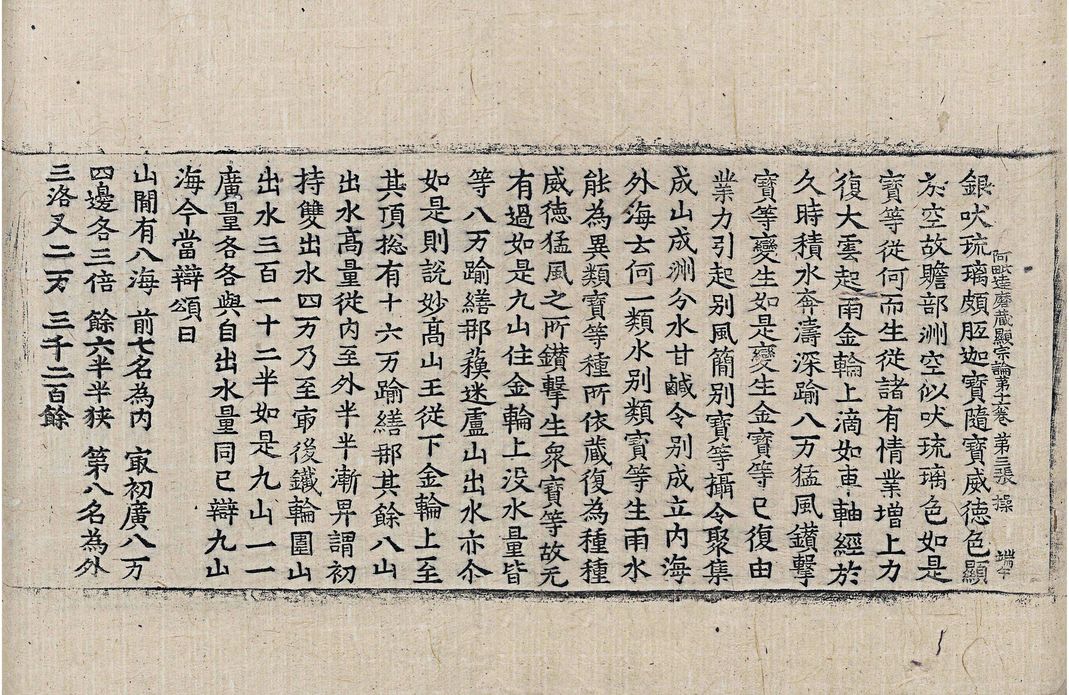 阿毗達磨藏顯宗論第十六卷 第三張 操 端午
銀吠琉璃頗胝迦寶隨寶威德色顯
於空故贍部洲空似吠琉璃色如是
寶等從何而生從諸有情業增上力
復大雲起雨金輪上滴如車軸經於
久時積水奔濤深踰八万猛風鑽擊
寶等變生如是變生金寶等已復由
業力引起別風簡別寶等攝令聚集
成山成洲分水甘鹹令別成立內海
外海云何一類水別類寶等生雨水
能為異類寶等種所依藏復為種種
威德猛風之所鑽擊生衆寶等故无
有過如是九山住金輪上没水量皆
等八万踰繕那蘓迷盧山出水亦尒
如是則說妙高山王從下金輪上至
其頂捴有十六万踰繕那其餘八山
出水高量從內至外半半漸昇謂初
持雙出水四万乃至㝡後鐵輪圍山
出水三百一十二半如是九山一一
廣量各各與自出水量同已辯九山
海今當辯頌曰
山閒有八海 前七名為內 㝡初廣八万
四邊各三倍 餘六半半狹 第八名為外
三洛叉二万 三千二百餘